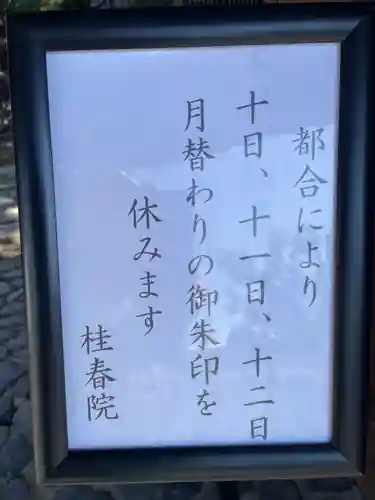 都合により
十日、十一日、十二日
月替わりの御朱印を
休みます
桂春院